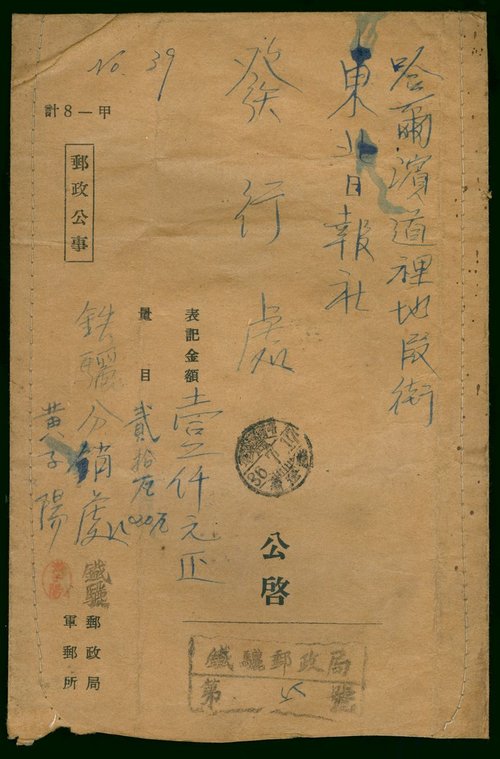 哈爾濱道裡地段街
東北日報社
發行處
No. 39
甲—8計
郵政公事
表記金額
壹仟元正
量目
貳拾
鉄驪分銷處
黄子陽
公啓
鐵驪郵政局
軍郵所
鐵驪郵政局
第 號